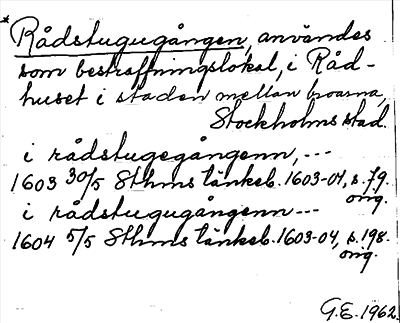 *Rådstugugången, användes
som bestraffningslokal, i Råd-
huset i staden mellan broarna,
Stockholms stad.
i rådstugegångenn, ---
1603 30/5 Sthms tänkeb. 1603-04, s. 79.
orig.
i rådstugugångenn ---
1604 5/5 Sthms tänkeb. 1603-04, s. 198.
orig.
G.E. 1962.